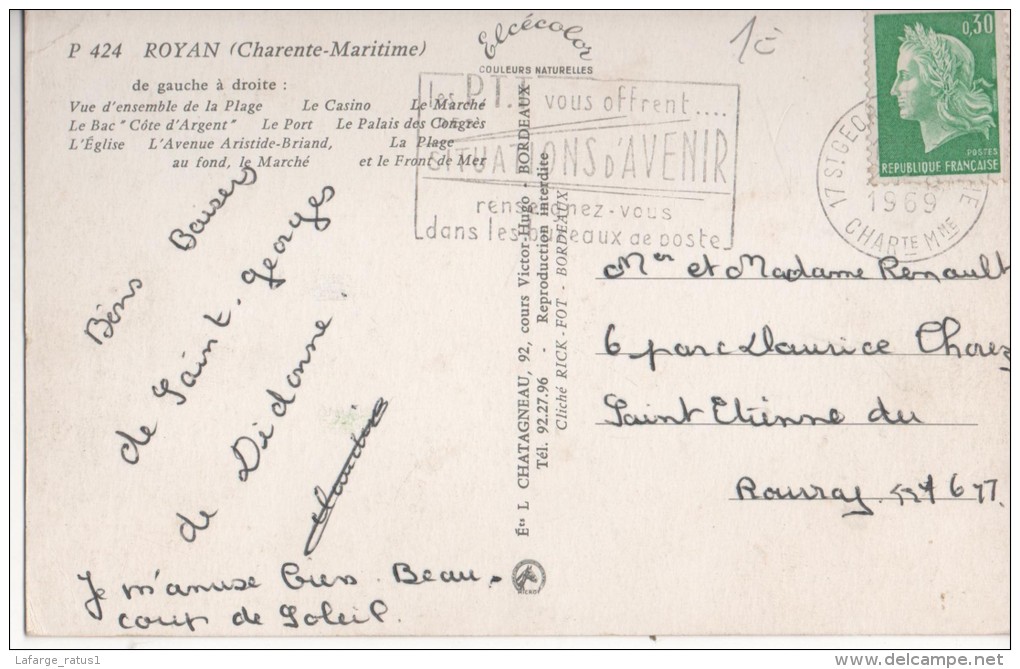 P 424 ROYAN (Charente-Maritime)
de gauche à droite :
Vue d'ensemble de la Plage Le Casino Le Marché
Le Bac "Côte d'Argent" Le Port Le Palais des Congrès
L'Église L'Avenue Aristide-Briand, La Plage
au fond, le Marché et le Front de Mer
Elcécolor
COULEURS NATURELLES
les P.T.T. vous offrent....
DES
SITUATIONS D'AVENIR
renseignez-vous
dans les bureaux de poste
1c
0,30
POSTES
REPUBLIQUE FRANÇAISE
17 ST GEO
1969
CHARTE MME
Bons Baisers
de Saint-Georges
de Didonne.
Claudie
Je m'amuse bien. Beau-
coup de Soleil.
Éts L CHATAGNEAU, 92, cours Victor-Hugo - BORDEAUX
Tél. 92.27.96 - Reproduction interdite
Cliché RICK-FOT - BORDEAUX
Mer et Madame Renault
6 parc Maurice Thorez
Saint Etienne du
Rouvray 76
Lafarge_ratus1
delcampe.net